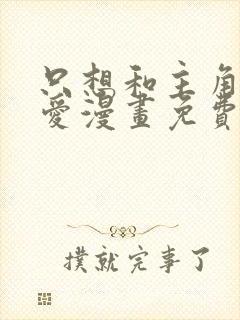 只想和主角
愛漫畫免費
撲就完事了